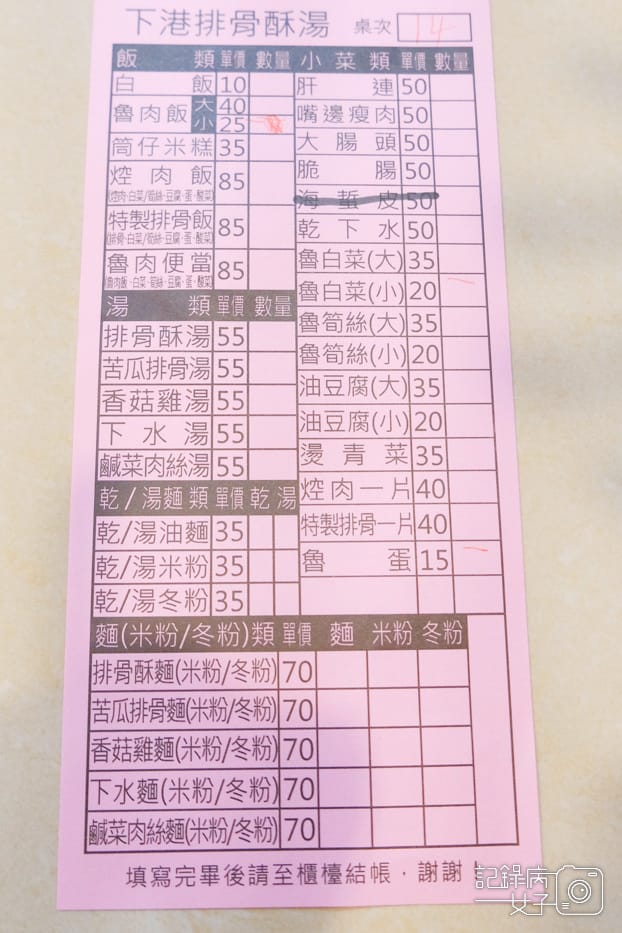 下港排骨酥湯 桌次 14
飯類 單價 數量
白飯 10
魯肉飯 大 40
小 25
筒仔米糕 35
焢肉飯 85
特製排骨飯 85
魯肉便當 85
湯類 單價 數量
排骨酥湯 55
苦瓜排骨湯 55
香菇雞湯 55
下水湯 55
鹹菜肉絲湯 55
乾/湯麵類 單價 乾 湯
乾/湯油麵 35
乾/湯米粉 35
乾/湯冬粉 35
小菜類 單價 數量
肝連 50
嘴邊瘦肉 50
大腸頭 50
脆腸 50
海蜇皮 50
乾下水 50
魯白菜(大) 35
魯白菜(小) 20
魯筍絲(大) 35
魯筍絲(小) 20
油豆腐(大) 35
油豆腐(小) 20
燙青菜 35
焢肉一片 40
特製排骨一片 40
魯蛋 15
麵(米粉/冬粉)類 單價 麵 米粉 冬粉
排骨酥麵(米粉/冬粉) 70
苦瓜排骨麵(米粉/冬粉) 70
香菇雞麵(米粉/冬粉) 70
下水麵(米粉/冬粉) 70
鹹菜肉絲麵(米粉/冬粉) 70
填寫完畢後請至櫃檯結帳，謝謝！
記錄病
女子